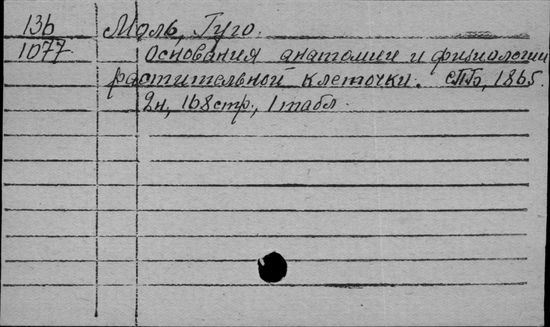 136 Моль, Гуго.
1077 Основания анатомии и физиологии
растительной клеточки. СПБ, 1865.
2н, 168стр., 1 табл.